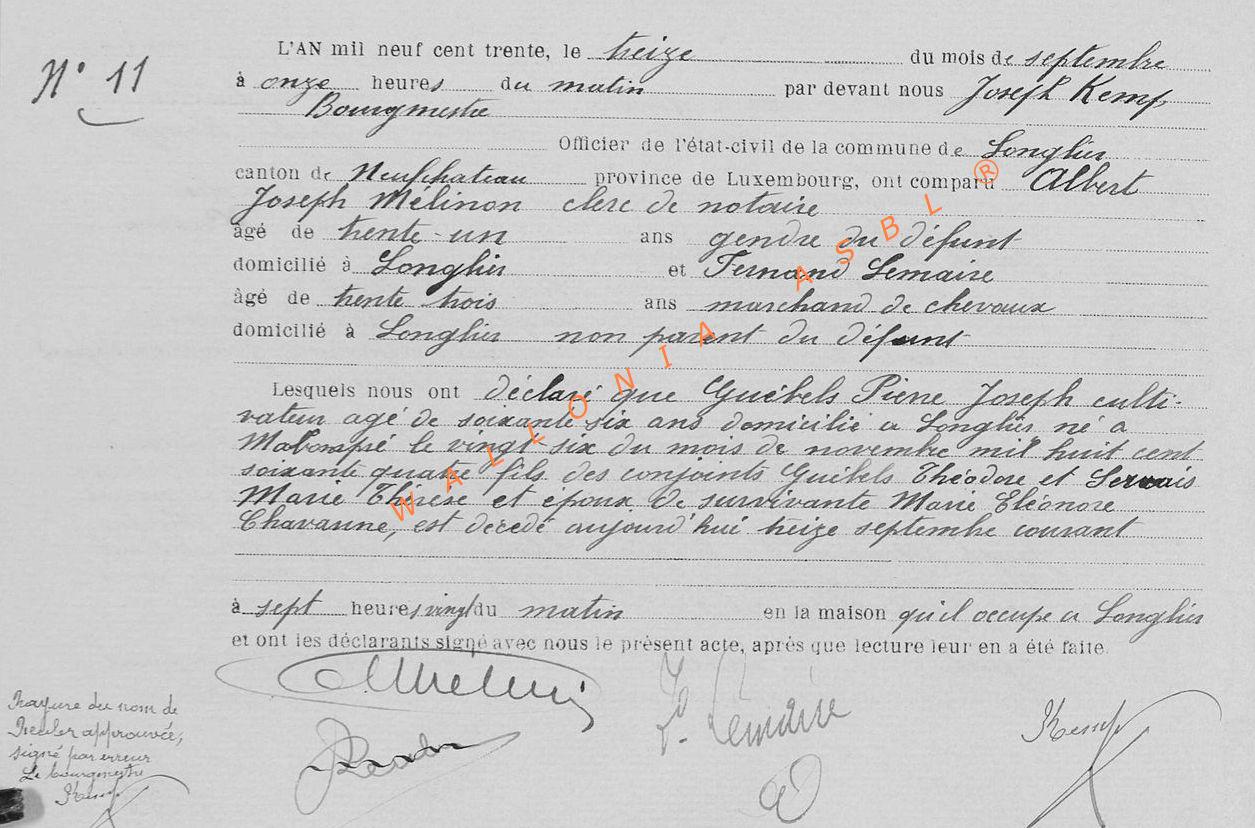 N° 11
L'AN mil neuf cent trente, le treize du mois de septembre
à onze heures du matin par devant nous Joseph Kemp
Bourgmestre
Officier de l'état-civil de la commune de Longlier
canton de Neufchateau province de Luxembourg, ont comparu Albert
Joseph Mélinon clerc de notaire
âgé de trente-un ans gendre du défunt
domicilié à Longlier et Fernand Lemaire
âgé de trente trois ans marchand de chevaux
domicilié à Longlier non parent du défunt
Lesquels nous ont déclaré que Guébels Pierre Joseph culti-
vateur agé de soixante six ans domicilié a Longlier né a
Mabompré le vingt-six du mois de novembre mil huit cent
soixante quatre fils des conjoints Guébels Théodore et Servais
Marie Thérèse et epoux de survivante Marie Eléonore
Chavanne, est decédé aujourd'hui treize septembre courant
à sept heures vingt du matin en la maison qu'il occupe a Longlier
et ont les déclarants signé avec nous le présent acte, après que lecture leur en a été faite.
F. Lemaire
Kemp
Rayure du nom de
Reuler approuvée,
signé par erreur
Le bourgmestre
Kemp
WALLONIA ASBL ®